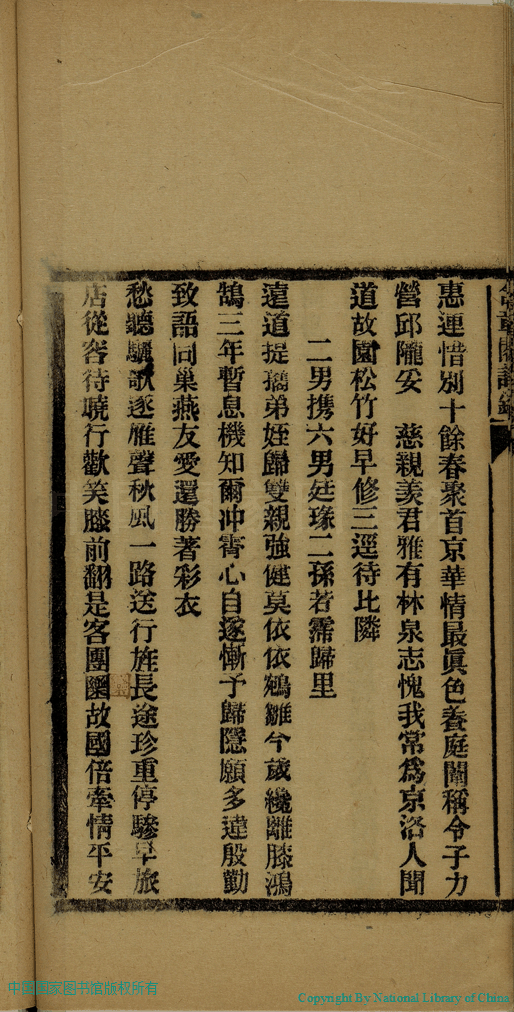 惠連惜別十餘春聚首京華情最眞色養庭闈稱令子力
營邱隴妥　慈親羨君雅有林泉志愧我常爲京洛人聞
道故園松竹好早修三逕待比隣
二男携六男廷瑑二孫若霈歸里
遠道提攜弟姪歸雙親強健莫依依鵷雛今歲纔離膝鴻
鵠三年暫息機知爾冲霄心自遂慚予歸隱願多違殷勤
致語同巢燕友愛還勝著彩衣
愁聽驪歌逐雁聲秋風一路送行旌長途珍重停驂早旅
店從容待曉行歡笑膝前翻是客團圞故國倍牽情平安
中国国家图书馆版权所有
Copyright By National Library of China